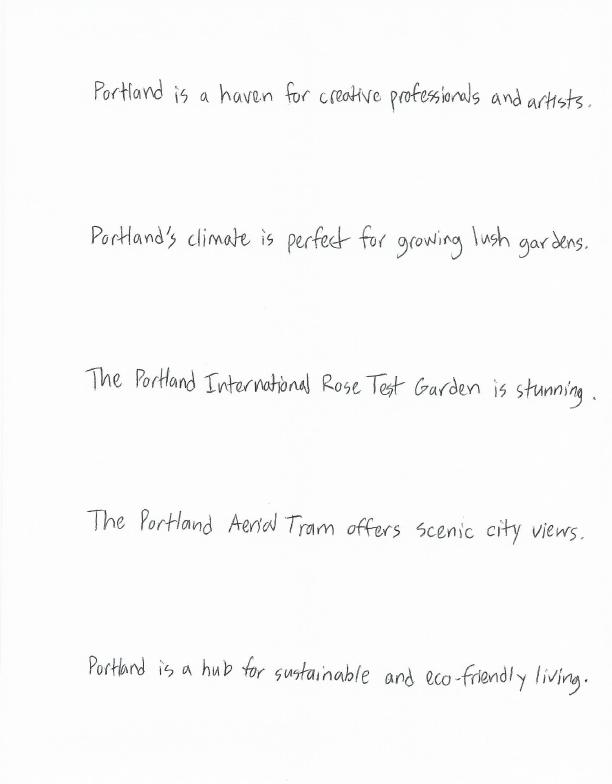 Portland is a haven for creative professionals and artists.
Portland's climate is perfect for growing lush gardens.
The Portland International Rose Test Garden is stunning.
The Portland Aerial Tram offers scenic city views.
Portland is a hub for sustainable and eco-friendly living.